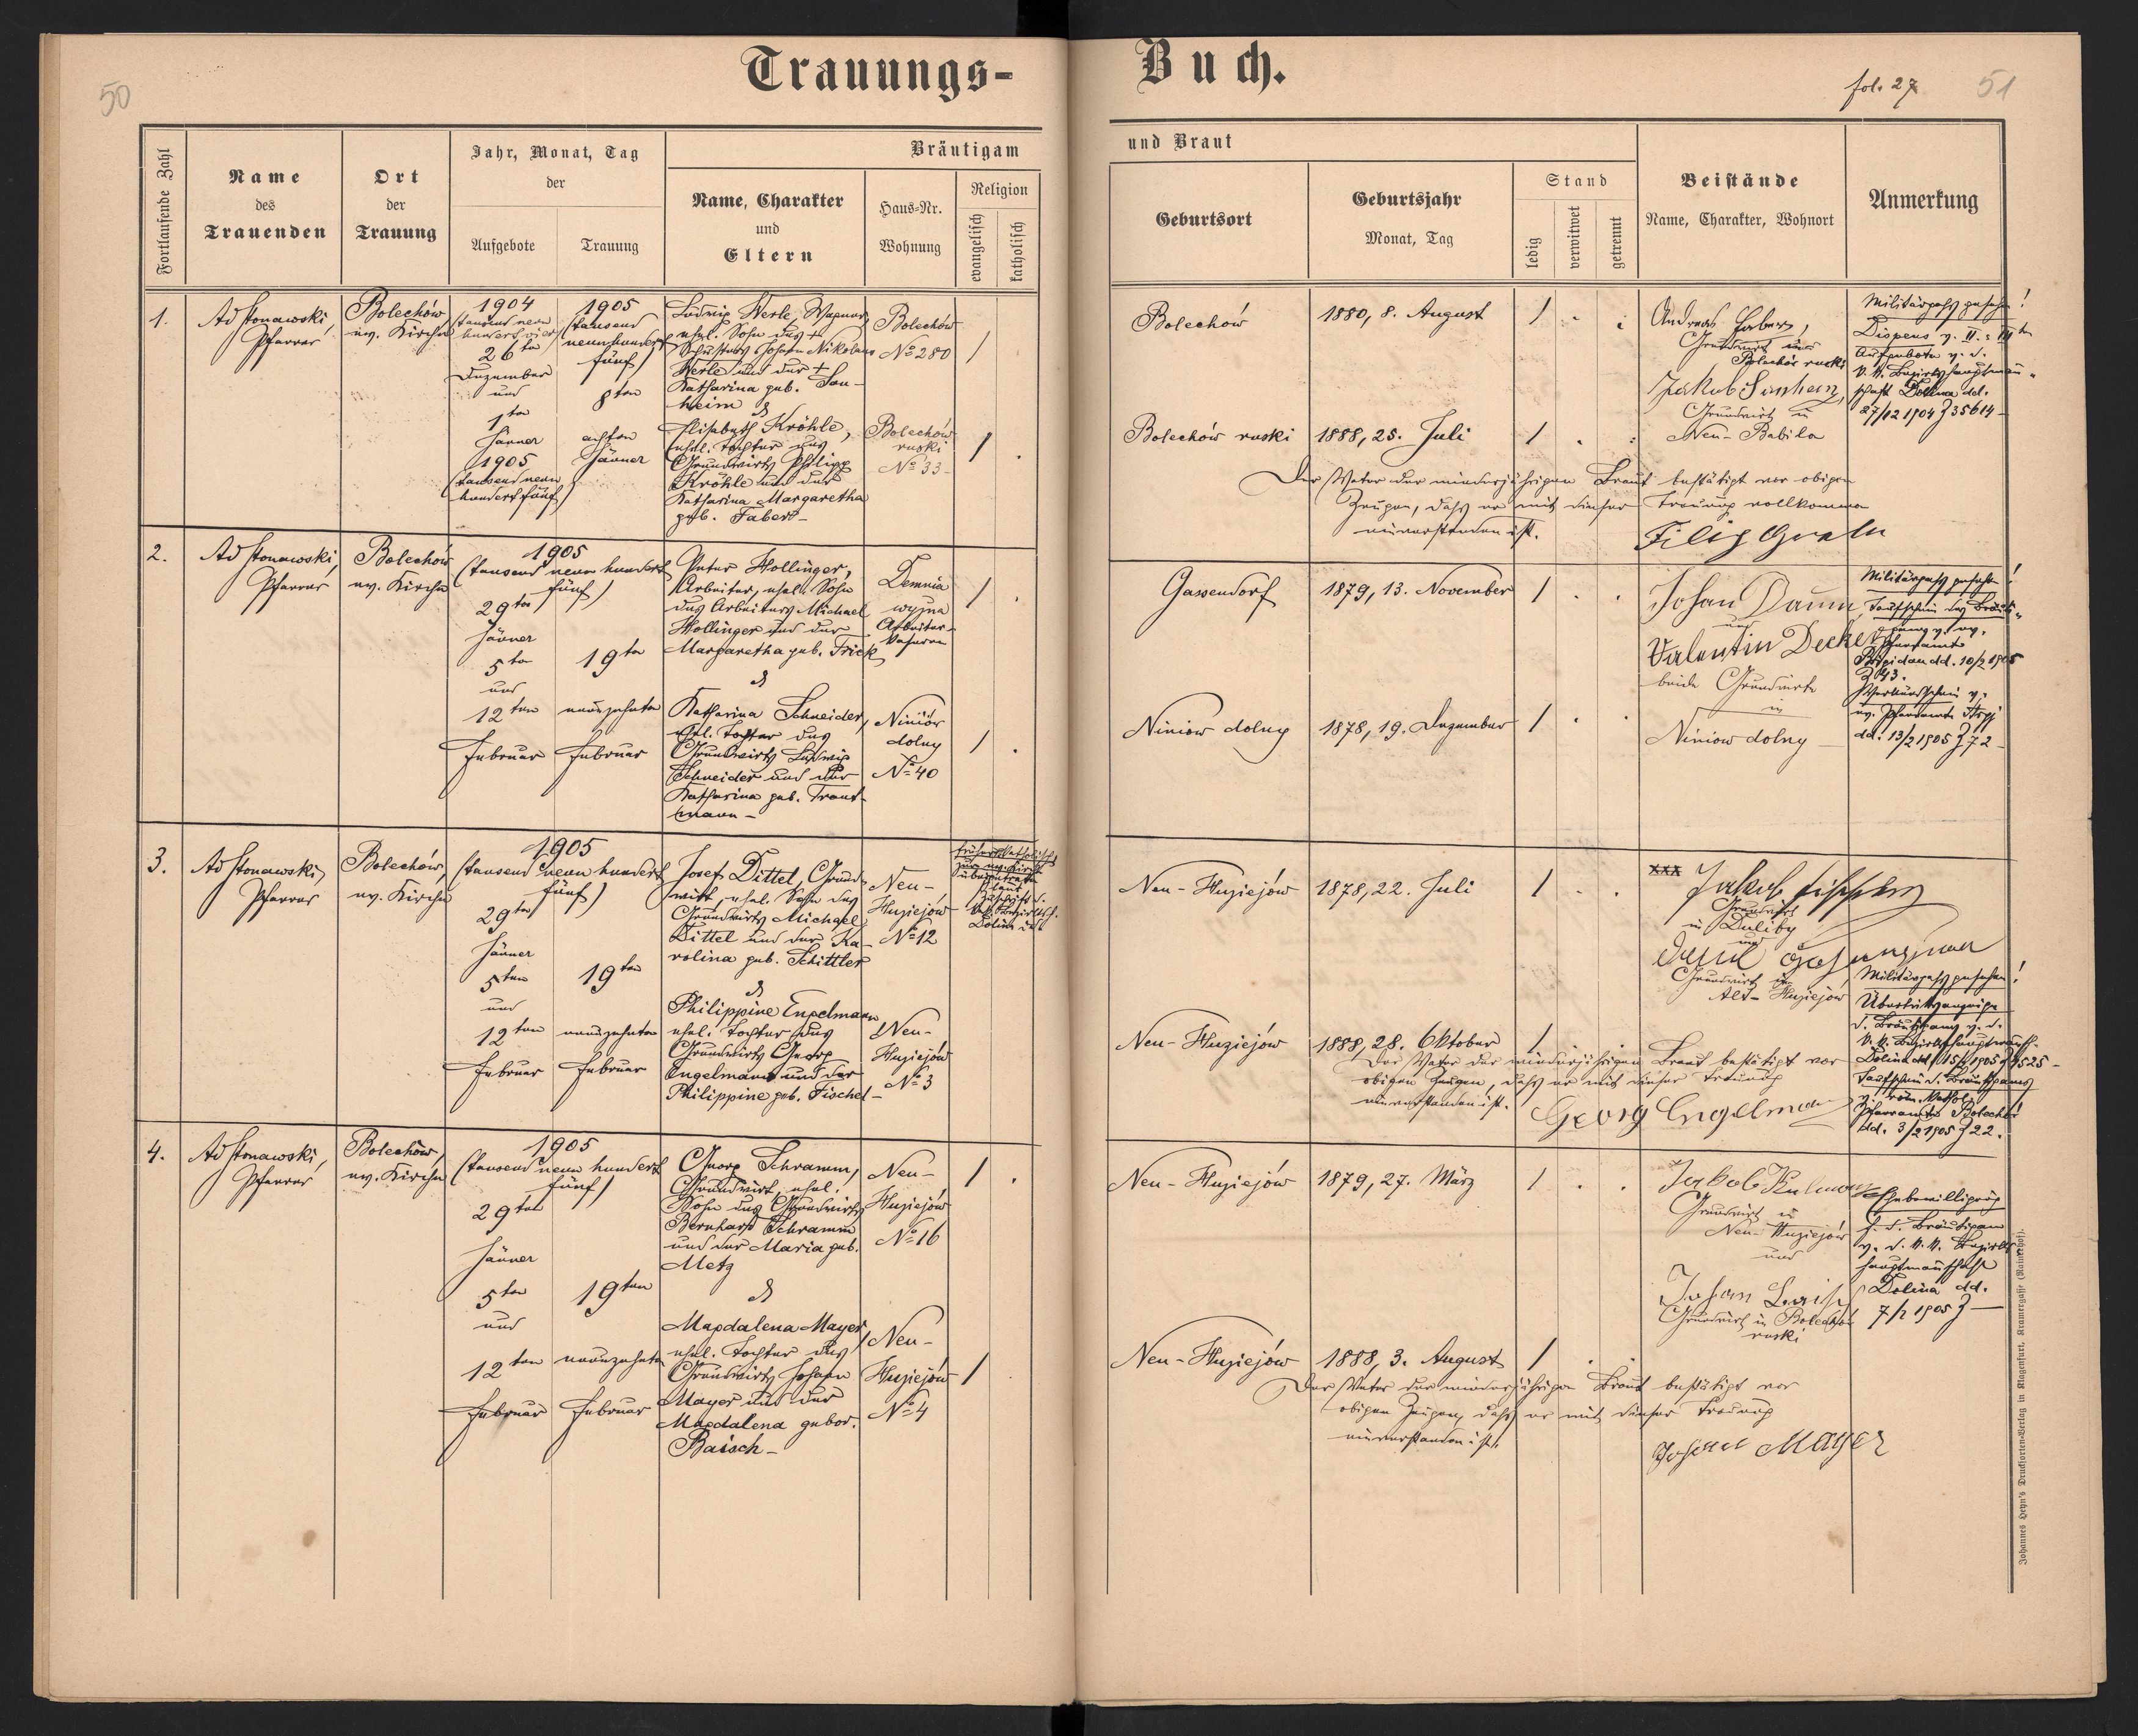 50
Trauungs-
Buch.
fol. 27
51
Fortlaufende Zahl
Name
des
Trauenden
Ort
der
Trauung
Jahr, Monat, Tag
der
Aufgebote
Trauung
Bräutigam
Name, Charakter
und
Eltern
Haus-Nr.
Wohnung
Religion
evangelisch
katholisch
und Braut
Geburtsort
Geburtsjahr
Monat, Tag
Stand
ledig
verwitwet
getrennt
Beistände
Name, Charakter, Wohnort
Anmerkung
1.
Ad Stonawski,
Pfarrer
Bolechów
ev. Kirche
1904
(tausend neun
hundert vier)
26ten
Dezember
und
1ten
Jänner
1905
(tausend neun
hundert fünf)
1905
(tausend
neunhundert
fünf)
8ten
achten
Jänner
Ludwig Werle, Wagner,
ehel. Sohn des +
Schusters Johann Nikolaus
Werle und der +
Katharina geb. Son-
heim
&
Elisabeth Kröhle,
ehel. Tochter des
Grundwirts Philipp
Kröhle und der
Katharina Margaretha
geb. Faber
Bolechów
№ 280
Bolechów
ruski
№ 33
Bolechów
1880, 8. August
1
Bolechów ruski
1888, 25. Juli
1
Andreas Faber,
Grundwirt in
Bolechów ruski
Jakob Sonheim,
Grundwirt in
Neu-Babilon
Militärpaß gesehen!
Dispens v. II. u. III ten
Aufgebote v. d.
k. k. Bezirkshauptman-
schaft Dolina dd.
27/12 1904 Z 35614
Der Vater der minderjährigen Braut bestätigt vor obigen
Zeugen, dass er mit dieser Trauung vollkommen
einverstanden ist.
2.
Ad Stonawski,
Pfarrer
Bolechów
ev. Kirche
1905
(tausend neun hundert
fünf)
29ten
Jänner
5ten
und
12ten
Februar
19ten
neunzehnten
Februar
Peter Hollinger,
Arbeiter, ehel. Sohn
des Arbeiters Michael
Hollinger und der
Margaretha geb. Frick
&
Katharina Schneider,
ehel. Tochter des
Grundwirts Ludwig
Schneider und der
Katharina geb. Traut-
mann
Demnia
wyżna
Arbeiter-
Niniów
dolny
№ 40
Gassendorf
1879, 13. November
1
Niniow dolny
1878, 19. Dezember
1
Johan Daum
und
Valentin Decker
beide Grundwirte
in
Niniow dolny
Militärpaß gesehen!
Taufschein des Bräuti-
gams v. ev.
Pfarramte
Brigidau dd. 10/2 1905
Z 43.
Verkündschein v.
ev. Pfarramte Stryj
dd. 13/2 1905 Z 72
3.
Ad Stonawski,
Pfarrer
Bolechów,
ev. Kirche
1905
(tausend neun hundert
fünf)
29ten
Jänner
5ten
und
12ten
Februar
19ten
neunzehnten
Februar
Josef Dittel, Grund-
wirt, ehel. Sohn des
Grundwirts Michael
Dittel und der Ka-
rolina geb. Schittler
&
Philippine Engelmann
ehel. Tochter des
Grundwirts Georg
Engelmann und der
Philippine geb. Fischel
Neu-
Huziejów
№ 12
Neu-
Huziejów
№ 3
früher katholisch,
zur ev. Kirche
übergetreten
laut
Zuschrift d.
Neu-Huziejów
1878, 22. Juli
1
Neu-Huziejów
1888, 28. Oktober
1
xxx
Grundwirt
in Duliby
und
Grundwirt in
Alt-Huziejów
Militärpaß gesehen!
Übertrittsanzeige
d. Bräutigams v. d.
k. k. Bezirkshauptmannsch.
Taufschein d. Bräutigams
v. röm. kathol.
Pfarramte Bolechów
dd. 3/2 1905 Z 22.
Der Vater der minderjährigen Braut bestätigt vor
obigen Zeugen, dass er mit dieser Trauung
einverstanden ist.
Georg Engelman
4.
Ad Stonawski,
Pfarrer
Bolechów,
ev. Kirche
1905
(tausend neun hundert
fünf)
29ten
Jänner
5ten
und
12ten
Februar
19ten
neunzehnten
Februar
Georg Schramm,
Grundwirt, ehel.
Sohn des Grundwirts
Bernhard Schramm
und der Maria geb.
Metz
&
Magdalena Mayer,
ehel. Tochter des
Grundwirts Johann
Mayer und der
Magdalena gebor.
Baisch
Neu-
Huziejów
№ 16
Neu-
Huziejów
№ 4
Neu-Huziejów
1879, 27. März
1
Neu-Huziejów
1888, 3. August
1
Jakob
Grundwirt in
Neu-Huziejów
und
Johan
Grundwirt in Bolechów
ruski
Ehebewilligung
f. d. Bräutigam
v. d. k. k. Bezirks-
hauptmannschaft
Dolina dd.
7/2 1905 Z —
Der Vater der minderjährigen Braut bestätigt vor
obigen Zeugen, dass er mit dieser Trauung
einverstanden ist.
Johann Mayer
Johannes Heyn's Drucksorten-Verlag in Klagenfurt, Kramergasse (Rainerhof).